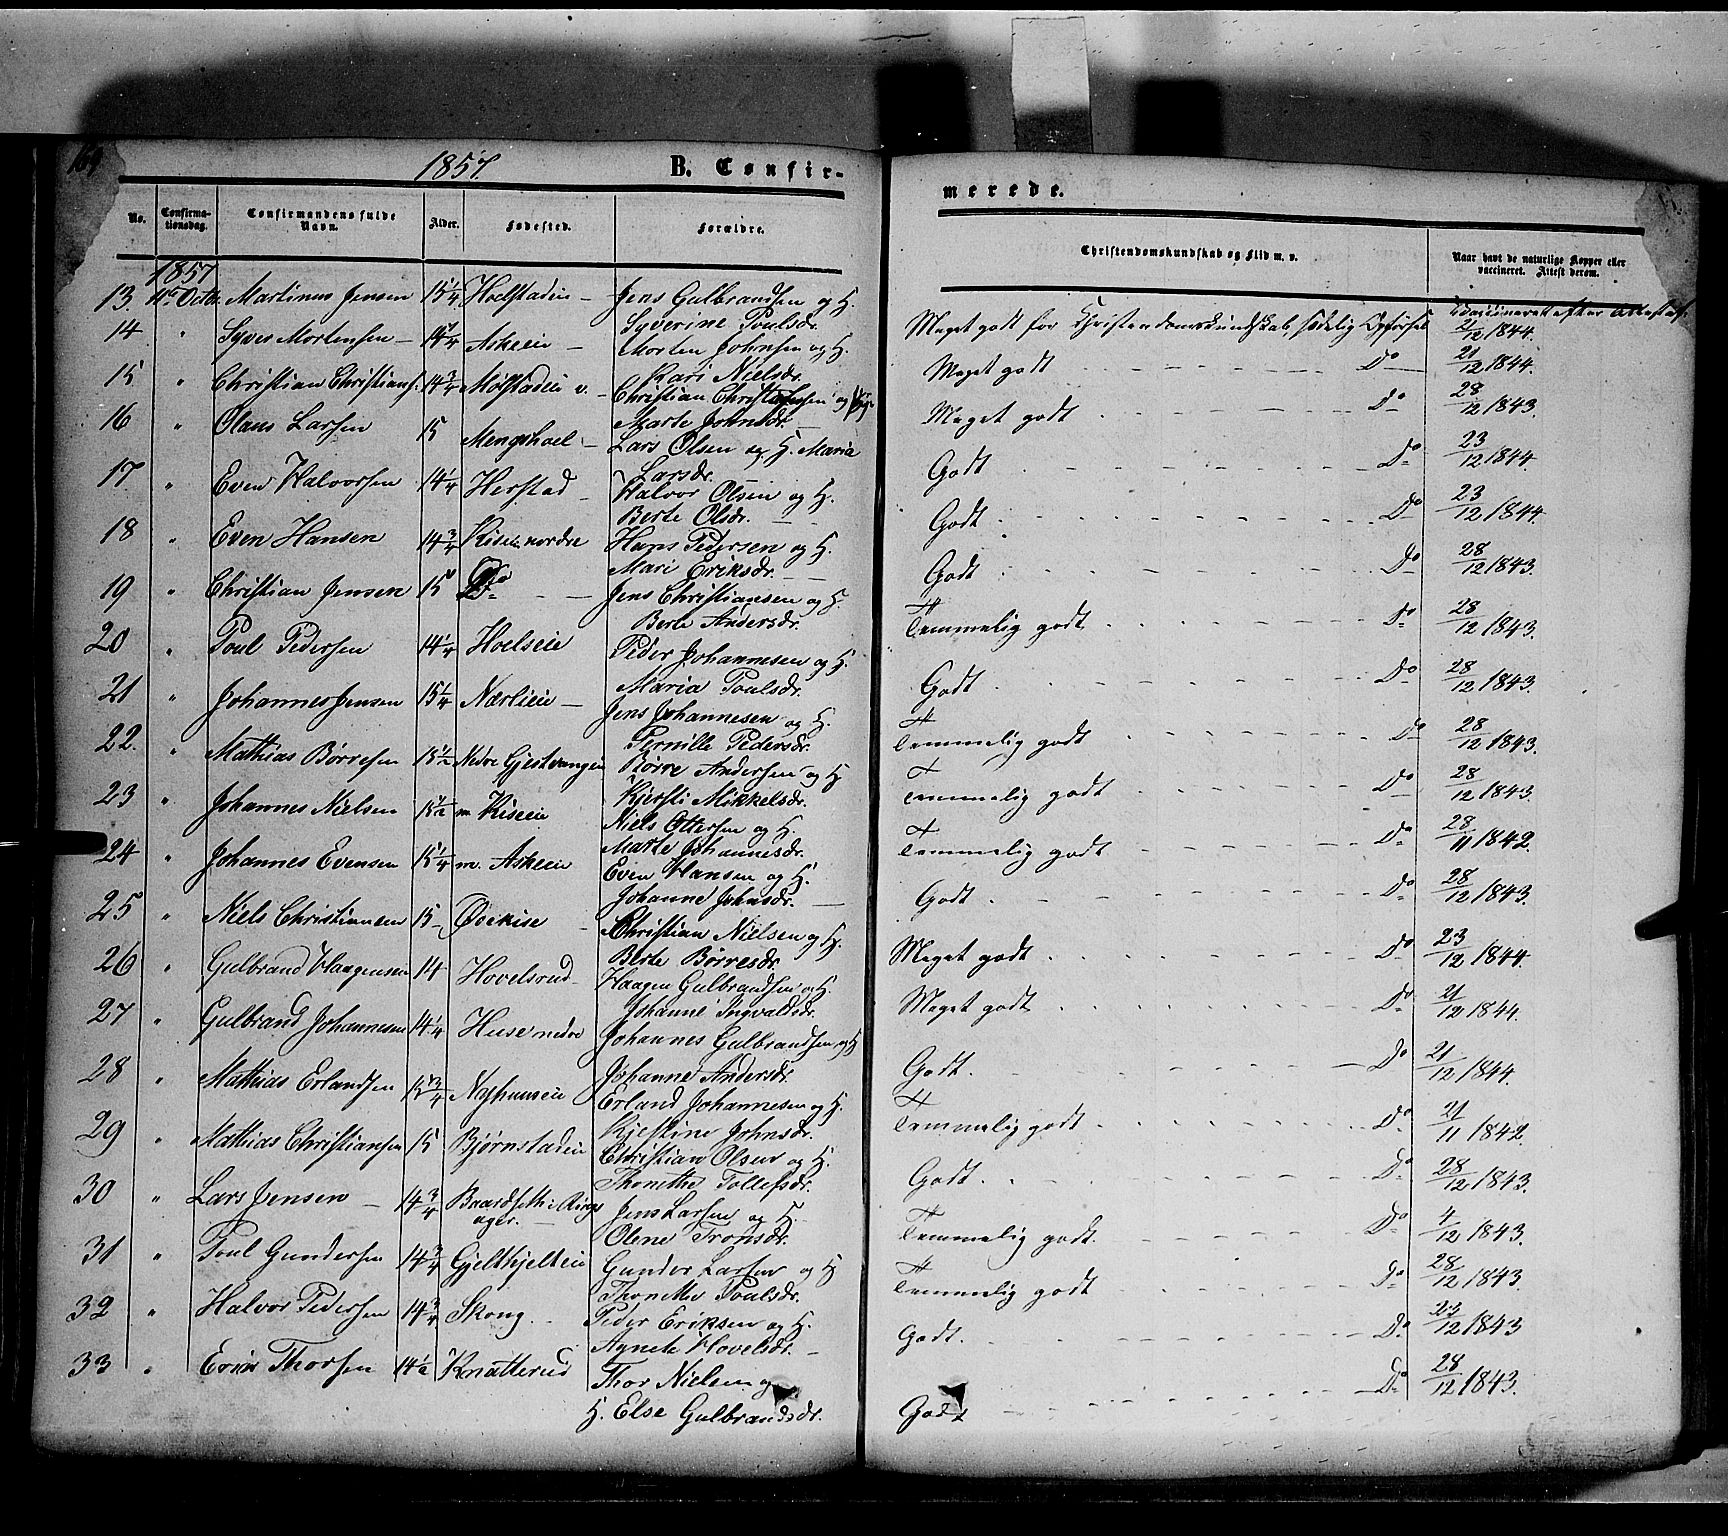 169
1857
B. Confir-
merede.
No.
Confirma-
tionsdag.
Confirmandens fulde
Navn.
Alder.
Fødested.
Forældre.
Christendomskundskab og Flid m. v.
Naar havt de naturlige Kopper eller
vaccineret. Attest derom.
1857
13. 11te Octbr. Martinus Jensen 15 1/4 Hoelstadeie – Jens Gulbrandsen og H.
Syverine Poulsdr.
Meget godt for Christendomskundskab, sædelig Opførsel
Vaccineret efter Attest af
21/12 1844.
14 " Syver Mortensen – 14 1/4 Askeeie – Morten Johnsen og H.
Kari Nielsdr.
Meget godt Do 21/12 1844.
15 " Christian Christians. 14 3/4 Molstadeie v. – Christian Christiansen og
Marte Johnsdr.
Meget godt Do 28/12 1843.
16 " Olaus Larsen 15 Mengshoel – Lars Olsen og H. Maria
Larsdr.
Godt Do 23/12 1844.
17 " Even Halvorsen 14 1/4 Herstad – Halvor Olsen og H.
Berte Olsdr.
Godt Do 23/12 1844.
18 " Even Hansen 14 3/4 Kise nordre Hans Pedersen og H.
Mari Eriksdr.
Godt Do 28/12 1843.
19 " Christian Jensen 15 Do – Jens Christiansen og H.
Berte Andersdr.
Temmelig godt Do 28/12 1843.
20 " Poul Pedersen 14 1/4 Hoelseie Peder Johannesen og H.
Maria Poulsdr.
Godt Do 28/12 1843.
21 " Johannes Jensen 15 1/4 Nærlieie – Jens Johannesen og H.
Pernille Pedersdr.
Temmelig godt Do 28/12 1843.
22. " Mathias Børresen 15 1/2 Nedre Gjestvangen Børre Andersen og H
Kjersti Mikkelsdr.
Temmelig godt Do 28/12 1843.
23 " Johannes Nielsen 15 1/2 m. Kiseeie Niels Ottersen og H.
Marte Johannesdr.
Temmelig godt Do 28/11 1842.
24 " Johannes Evensen 15 1/4 m. Askeeie Even Hansen og H.
Johanne Johnsdr.
Godt Do 28/12 1843.
25 " Niels Christiansen 15 – Øvekise – Christian Nielsen og H.
Berte Børresdr
Meget godt Do 23/12 1844.
26 " Gulbrand Haagensen 14 Hovelsrud – Haagen Gulbrandsen og H.
Johanne Ingvaldsdr.
Meget godt Do 21/12 1844.
27 " Gulbrand Johannesen 14 1/4 Huse nedre Johannes Gulbrandsen og H
Johanne Andersdr.
Godt. Do 21/12 1844.
28 " Mathias Erlandsen 15 3/4 Næshuuseie Erland Johannesen og H.
Kjestine Johnsdr.
Temmelig godt Do 21/11 1842.
29 " Mathias Christiansen 15 Bjørnstadeie Christian Olsen og H.
Thonethe Tollefsdr.
Godt. Do 28/12 1843.
30 " Lars Jensen – 14 3/4 Baardseth i Rings
ager. – Jens Larsen og H.
Olene Tronsdr.
Temmelig godt. Do 4/12 1843.
31 " Poul Gundersen 14 3/4 Gjelthjelteie Gunder Larsen og H
Thonethe Poulsdr.
Temmelig godt Do 28/12 1843
32 " Halvor Pedersen 14 3/4 Skong. Peder Eriksen og H.
Agnete Hovelsdr. –
Godt. Do 23/12 1843
33 " Even Thorsen 14 1/2 Knatterud Thor Nielsen og
H. Else Gulbrandsdr.
Godt Do 28/12 1843.